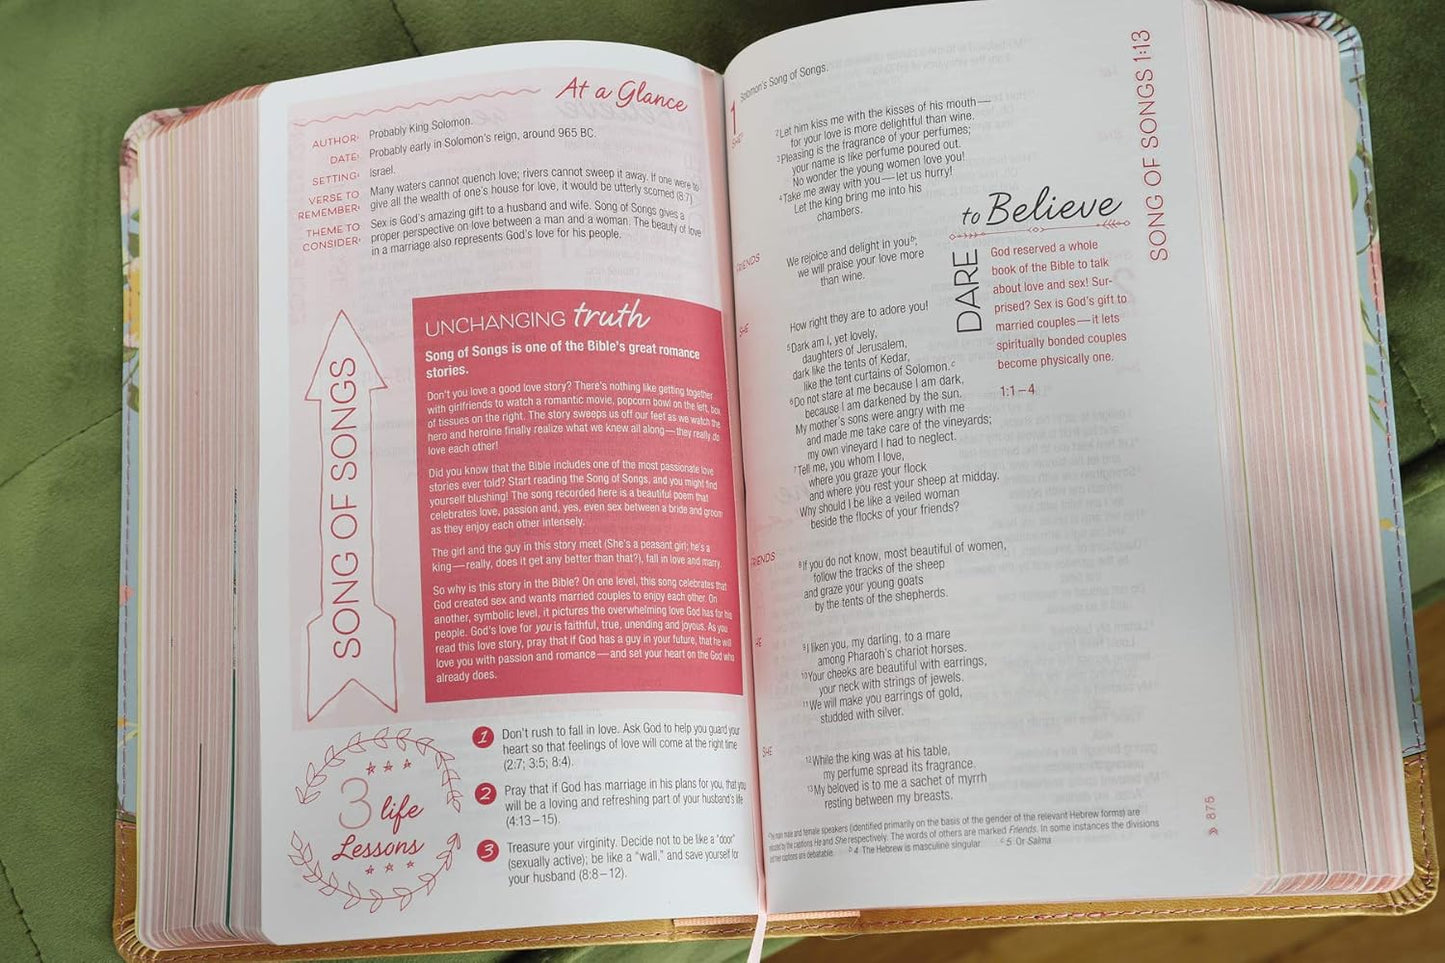 At a Glance
AUTHOR: Probably King Solomon.
DATE: Probably early in Solomon's reign, around 965 BC.
SETTING: Israel.
VERSE TO REMEMBER: Many waters cannot quench love; rivers cannot sweep it away. If one were to
give all the wealth of one's house for love, it would be utterly scorned (8:7).
THEME TO CONSIDER: Sex is God's amazing gift to a husband and wife. Song of Songs gives a
proper perspective on love between a man and a woman. The beauty of love
in a marriage also represents God's love for his people.
SONG OF SONGS
UNCHANGING truth
Song of Songs is one of the Bible's great romance
stories.
Don't you love a good love story? There's nothing like getting together
with girlfriends to watch a romantic movie, popcorn bowl on the left, box
of tissues on the right. The story sweeps us off our feet as we watch the
hero and heroine finally realize what we knew all along—they really do
love each other!
Did you know that the Bible includes one of the most passionate love
stories ever told? Start reading the Song of Songs, and you might find
yourself blushing! The song recorded here is a beautiful poem that
celebrates love, passion and, yes, even sex between a bride and groom
as they enjoy each other intensely.
The girl and the guy in this story meet (She's a peasant girl; he's a
king—really, does it get any better than that?), fall in love and marry.
So why is this story in the Bible? On one level, this song celebrates that
God created sex and wants married couples to enjoy each other. On
another, symbolic level, it pictures the overwhelming love God has for his
people. God's love for you is faithful, true, unending and joyous. As you
read this love story, pray that if God has a guy in your future, that he will
love you with passion and romance—and set your heart on the God who
already does.
3 life
Lessons
1 Don't rush to fall in love. Ask God to help you guard your
heart so that feelings of love will come at the right time
(2:7; 3:5; 8:4).
2 Pray that if God has marriage in his plans for you, that you
will be a loving and refreshing part of your husband's life
(4:13–15).
3 Treasure your virginity. Decide not to be like a "door"
(sexually active); be like a "wall," and save yourself for
your husband (8:8–12).
1 Solomon's Song of Songs.
SHE
2Let him kiss me with the kisses of his mouth—
for your love is more delightful than wine.
3Pleasing is the fragrance of your perfumes;
your name is like perfume poured out.
No wonder the young women love you!
4Take me away with you—let us hurry!
Let the king bring me into his
chambers.
FRIENDS
We rejoice and delight in you b;
we will praise your love more
than wine.
SHE
How right they are to adore you!
5Dark am I, yet lovely,
daughters of Jerusalem,
dark like the tents of Kedar,
like the tent curtains of Solomon. c
6Do not stare at me because I am dark,
because I am darkened by the sun.
My mother's sons were angry with me
and made me take care of the vineyards;
my own vineyard I had to neglect.
7Tell me, you whom I love,
where you graze your flock
and where you rest your sheep at midday.
Why should I be like a veiled woman
beside the flocks of your friends?
FRIENDS
8If you do not know, most beautiful of women,
follow the tracks of the sheep
and graze your young goats
by the tents of the shepherds.
HE
9I liken you, my darling, to a mare
among Pharaoh's chariot horses.
10Your cheeks are beautiful with earrings,
your neck with strings of jewels.
11We will make you earrings of gold,
studded with silver.
SHE
12While the king was at his table,
my perfume spread its fragrance.
13My beloved is to me a sachet of myrrh
resting between my breasts.
main male and female speakers (identified primarily on the basis of the gender of the relevant Hebrew forms) are
by the captions He and She respectively. The words of others are marked Friends. In some instances the divisions
captions are debatable. b 4 The Hebrew is masculine singular c 5 Or Salma
DARE to Believe
God reserved a whole
book of the Bible to talk
about love and sex! Sur-
prised? Sex is God's gift to
married couples—it lets
spiritually bonded couples
become physically one.
1:1–4
SONG OF SONGS 1:13
875